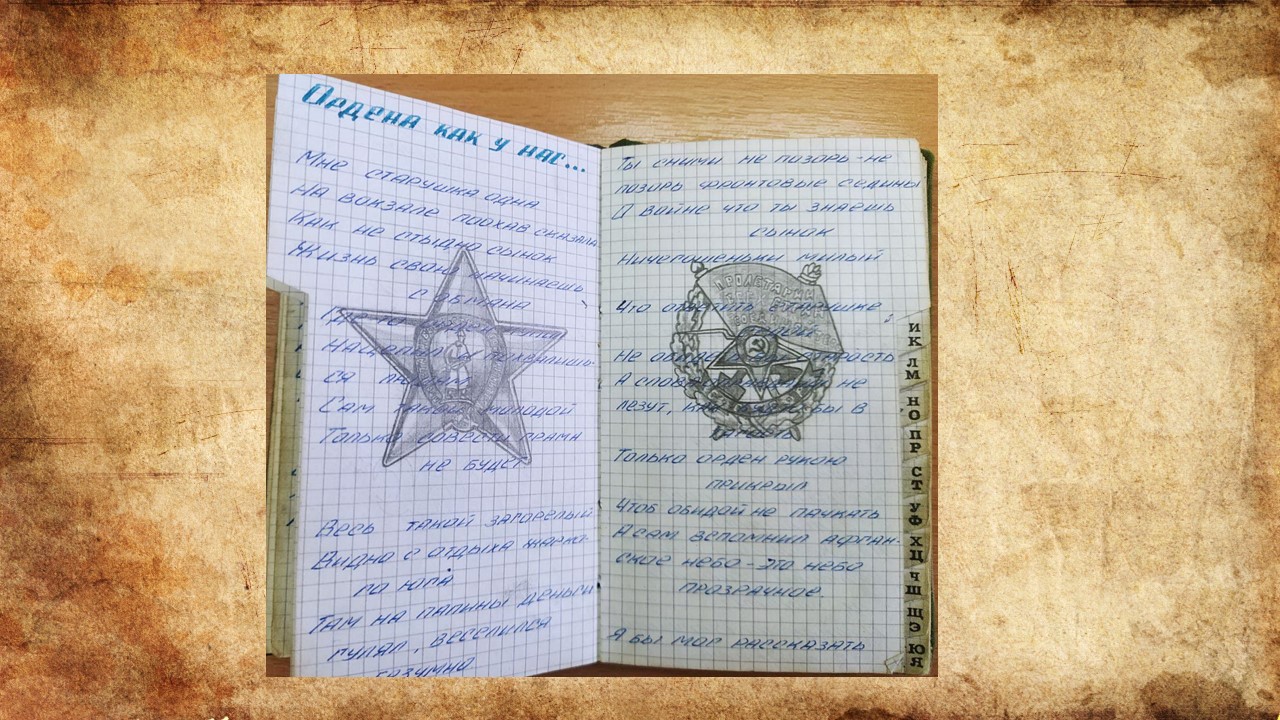 Ордена как у нас...
Мне старушка одна
На вокзале поохав сказала
Как не стыдно сынок
Жизнь свою начинаешь
с обмана
Где то орден купил
Нацепил и похвалишь-
ся людям
Сам такой молодой
Только совести грамма
не будет
Весь такой загорелый
Видно с отдыха жарко-
го юга
Там на папины деньги
гулял, веселился
безумно
Ты сними не позорь-не
позорь фронтовые седины
О войне что ты знаешь
сынок
Ничегошеньки милый
Что ответить старушке
той
Не обидеть бы старость
А слова не
лезут, как бы в
Только орден рукою
прикрыл
Чтоб обидой не пачкать
А сам вспомнил афган-
ское небо-это небо
прозрачное.
Я бы мог рассказать
ПРОЛЕТАРИИ
ВСЕХ СТРАН
СОЕДИНЯЙТЕСЬ
ИК
ЛМ
НО
ПР
СТ
УФ
ХЦ
ЧШ
ЩЭ
ЮЯ